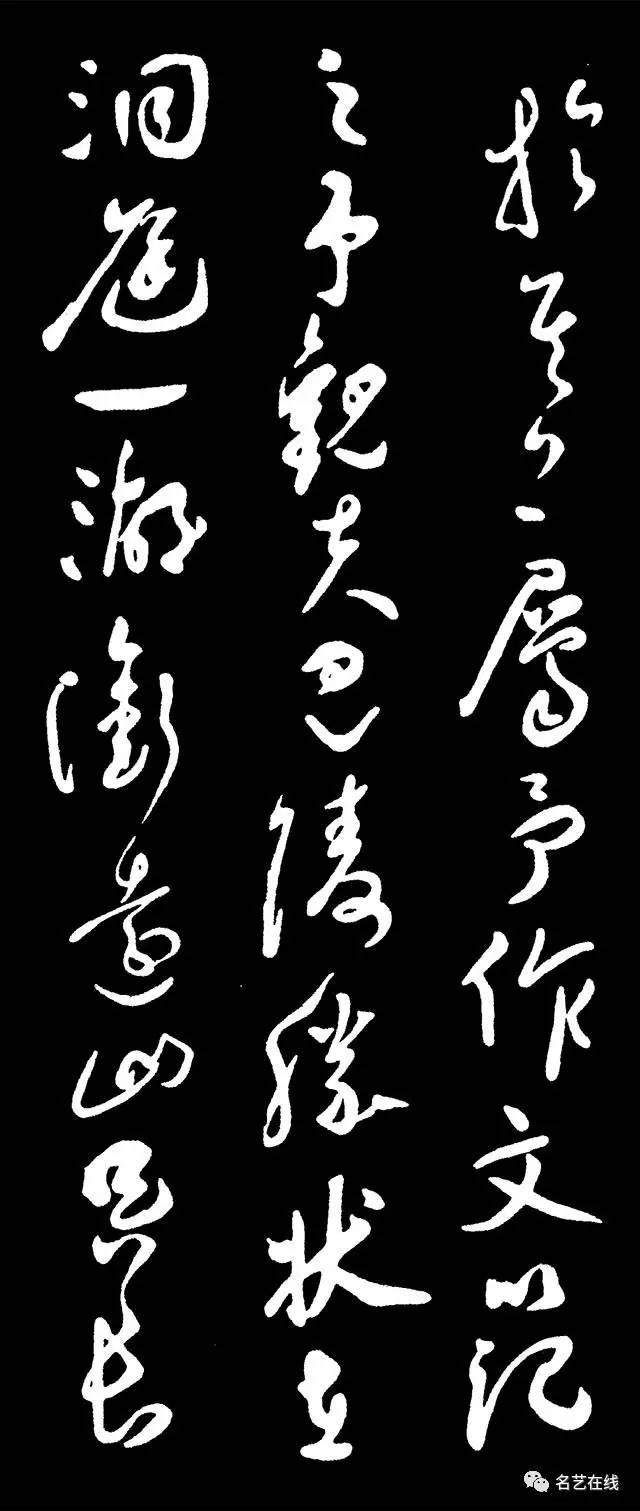 於其上屬予作文以記
之予觀夫巴陵勝狀在
洞庭一湖銜遠山吞長
名艺在线